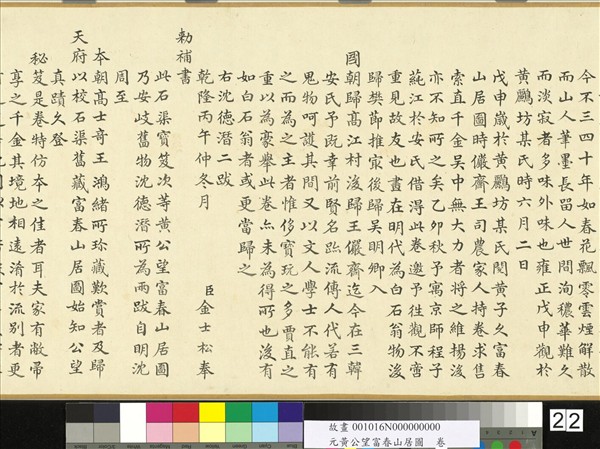 今不三四十年如春花飄零雲煙解散
而山人筆墨長留人世間洵穠華難久
而淡寂者多味外味也雍正戊申觀於
黃鸝坊某氏時六月二日
戊申歲於黃鸝坊某氏閱黃子久富春
山居圖時儼齋王司農家人持卷求售
索直千金吳中無大力者將之維揚後
亦不知所之矣乙卯秋予寓京師程子
蓴江於安氏借得此卷邀予往觀不啻
重見故友也畫在明代為白石翁物後
歸樊節推家後歸吳明卿入
國朝歸高江村後歸王儼齋迄今在三韓
安氏予既幸前賢名跡流傳人代若有
鬼物呵護其間又以文人學士不能有
之而為之主者惟侈寶玩之多賈直之
重以為豪舉此卷亦未為得所也後有
如白石翁者或更當歸之
右沈德潛二跋
乾隆丙午仲冬月 臣金士松奉
勑補書
此石渠寶笈次等黃公望富春山居圖
乃安岐舊物沈德潛所為兩跋自明沈
周至
本朝高士奇王鴻緒所珍藏歎賞者及歸
天府以校石渠舊藏富春山居圖始知公望
真蹟久登
秘笈是卷特仿本之佳者耳夫家有敝帚
享之千金其境地相遠淆於流別者更
故畫 001016N000000000
元黃公望富春山居圖 卷
22